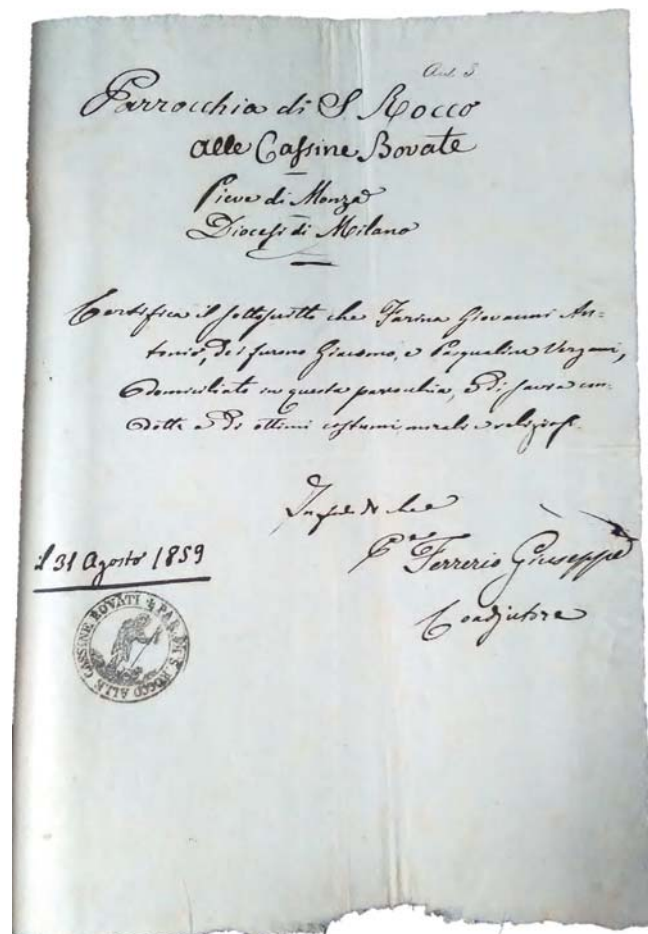 Parrocchia di S Rocco
alle Cassine Bovate
Pieve di Monza
Diocesi di Milano
Certifica il sottoscritto che Farina Giovanni An-
tonio, dei furono Giacomo, e Pasqualina Verzani,
domiciliato in questa parrocchia, è di savia con-
dotta e di ottimi costumi morali e religiosi.
In fede di che
il 31 Agosto 1859
Pte Ferrerio Giuseppe
Coadjutore
PAR. DI S. ROCCO ALLE CASSINE BOVATI